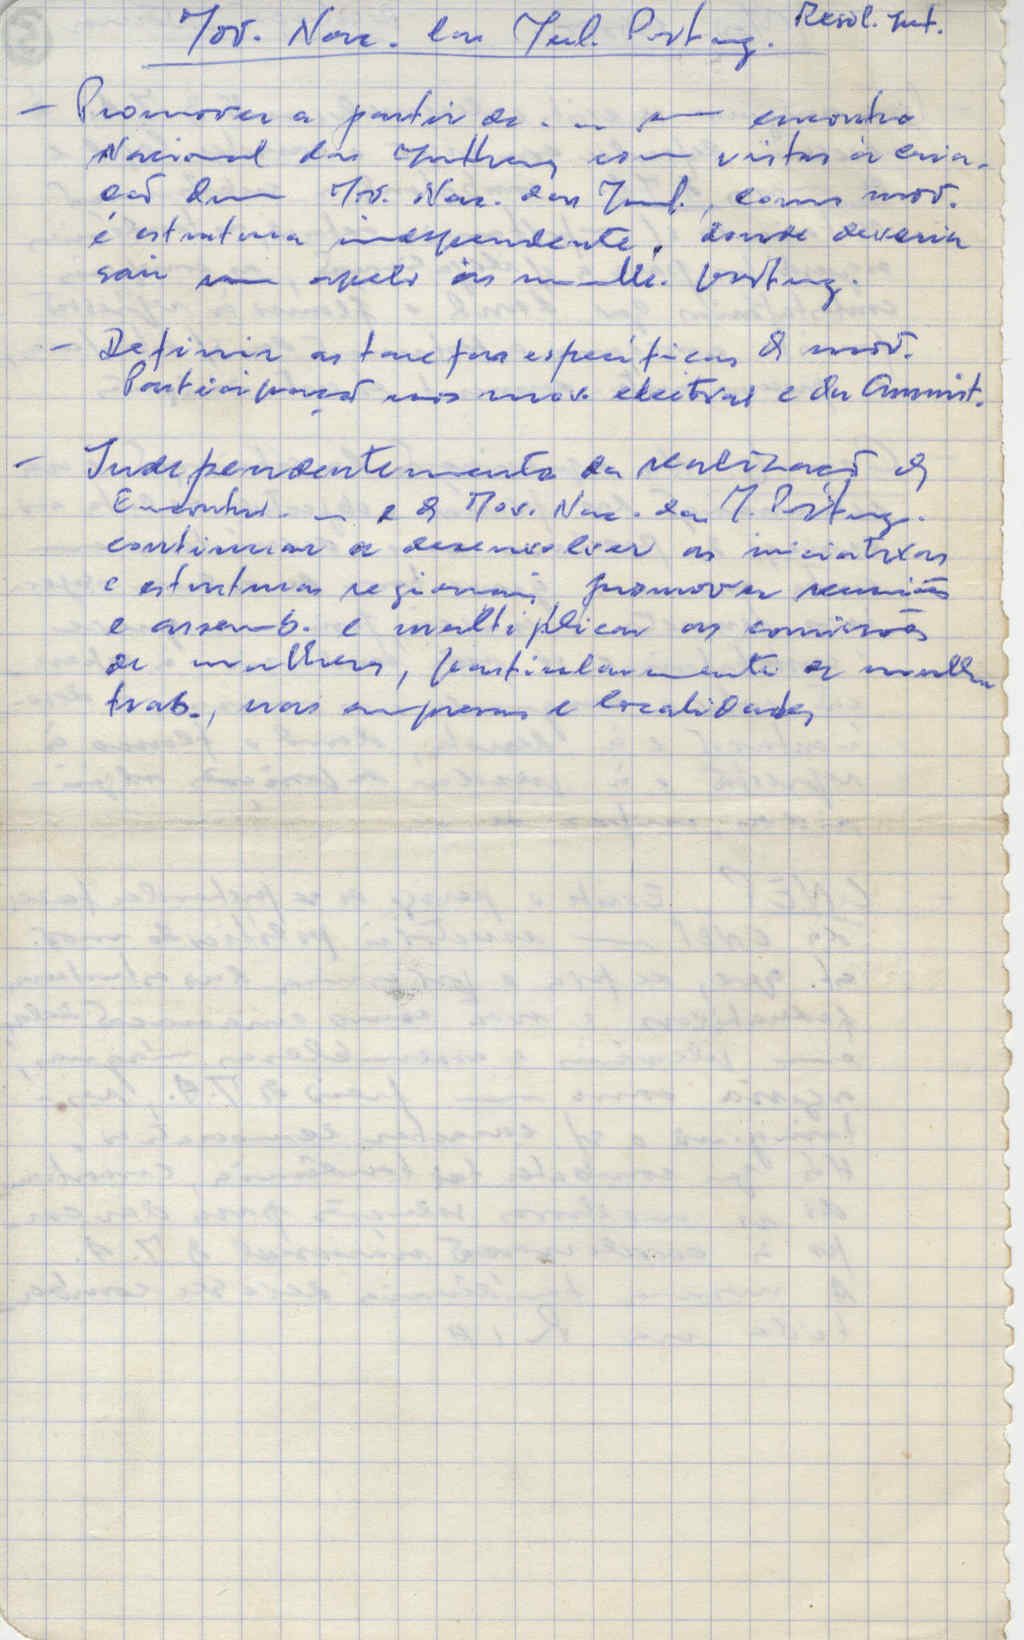 Mov. Nac. das Mul. Portug. Resol. Int.
— Promover a partir de ... um encontro
Nacional das Mulheres com vistas à cria-
ção dum Mov. Nac. das Mul., como mov.
e estrutura independente, donde deveria
sair um apelo às mulh. portug.
— Definir as tarefas específicas do mov.
Participação nos mov. eleitoral e da Amnist.
— Independentemente da realização do
Encontro e do Mov. Nac. das M. Portug.
continuar a desenvolver as iniciativas
e estruturas regionais, promover reuniões
e assemb. e multiplicar as comissões
de mulheres, particularmente de mulh.
trab., nas empresas e localidades